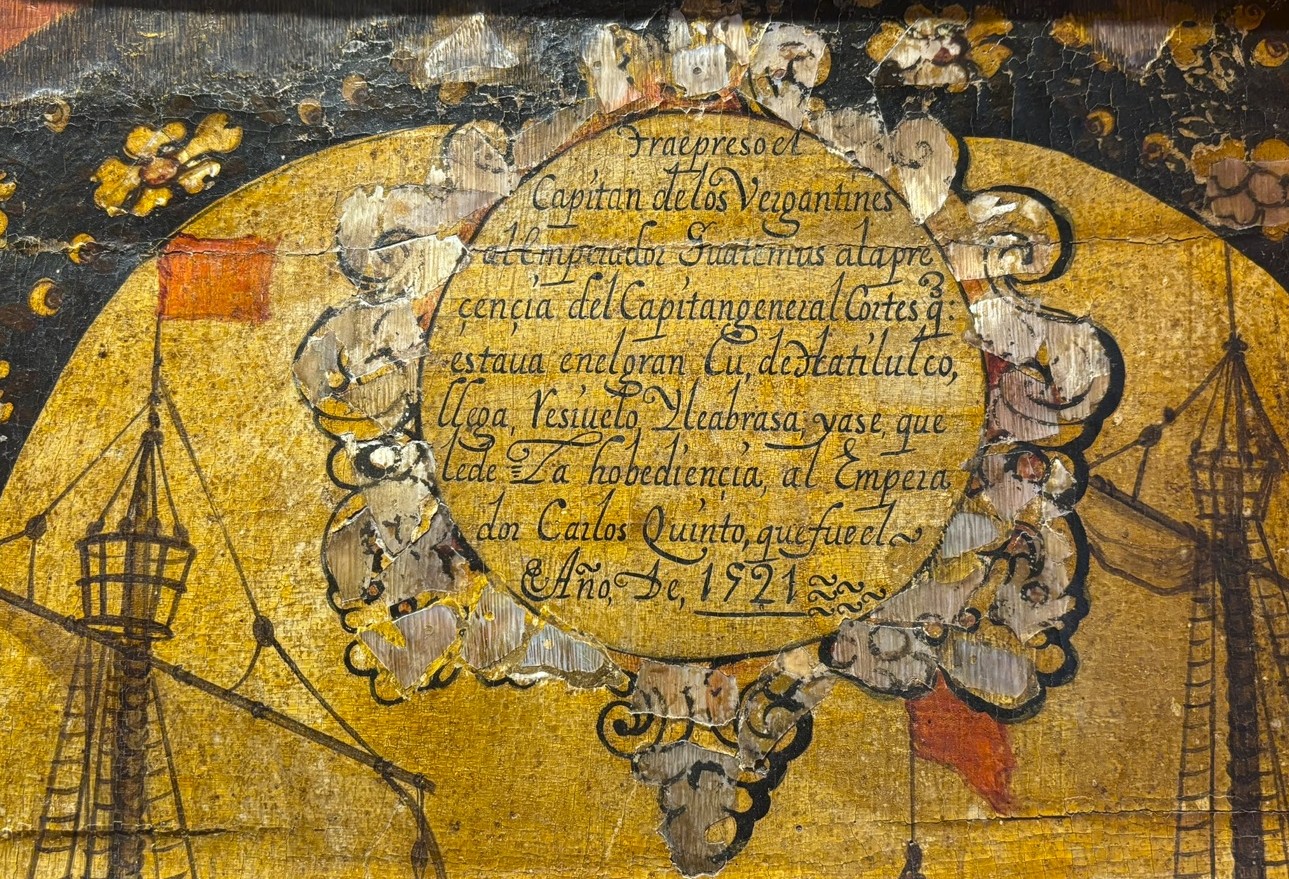 Traepreso el
Capitan de los Vergantines
al Emperador Guatemus alapre
çençia del Capitangeneral Cortes q̃.
estaua enelgran Cu, detlatilulco,
llega, Yesiuelo Yleabrasa, yase, que
lede La hobediençia, al Empera
dor Carlos Quinto, quefueel
Año, De, 1521